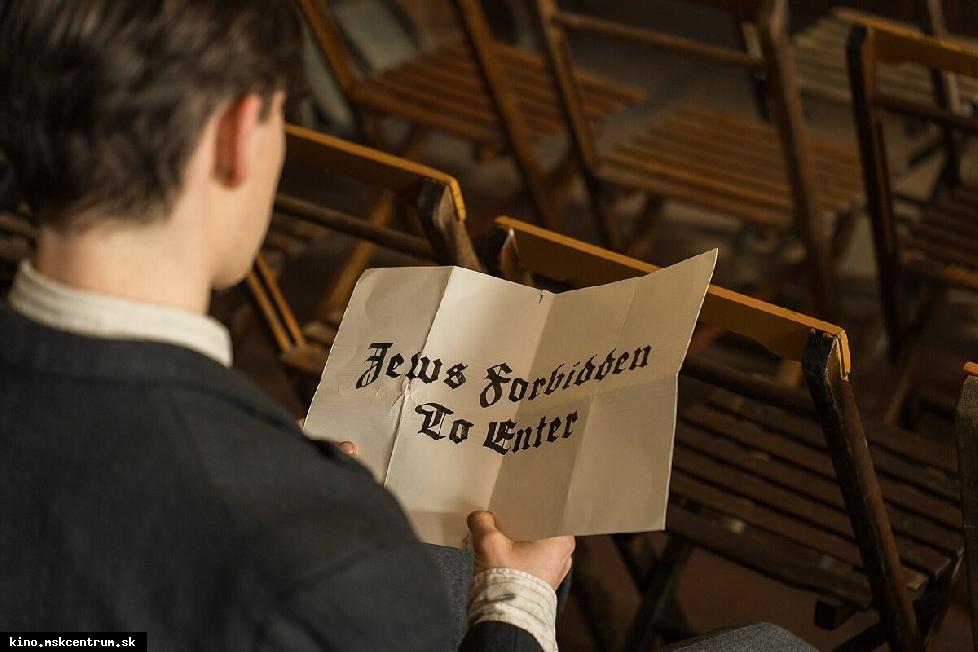 Jews Forbidden
To Enter
kino.mskcentrum.sk